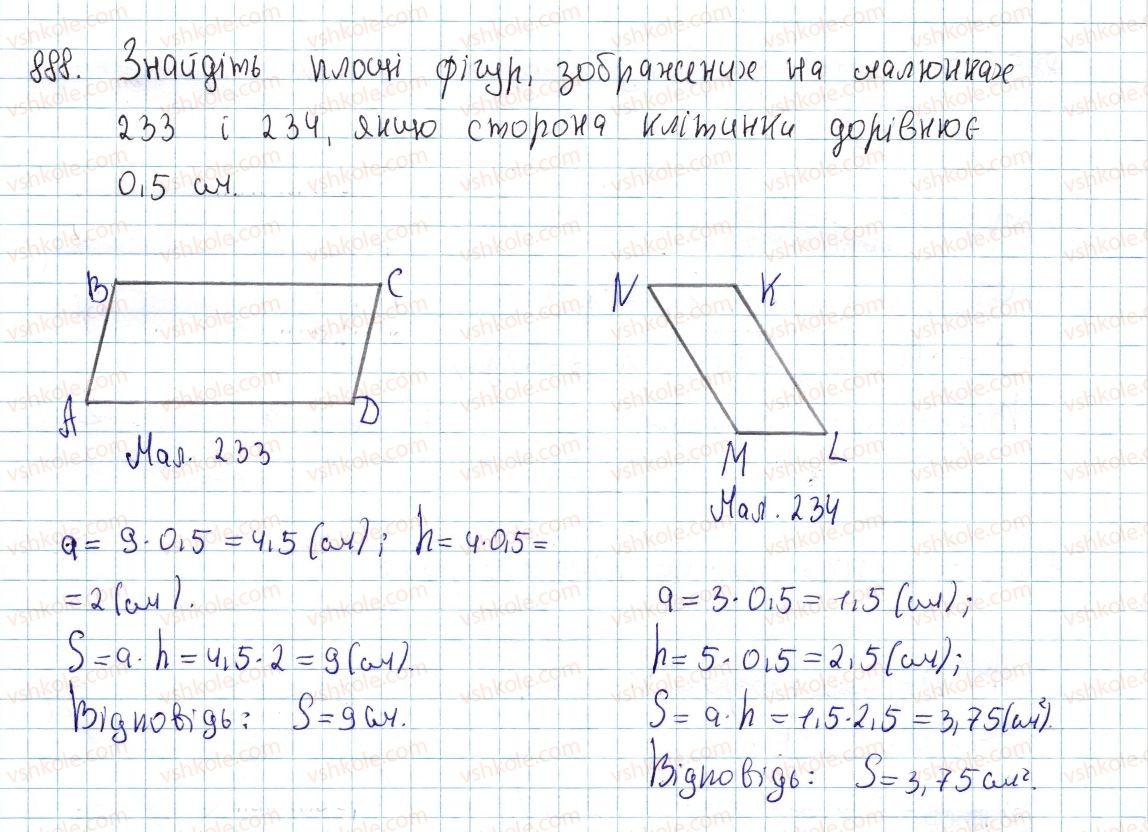 888. Знайдіть площі фігур, зображених на малюнках
233 і 234, якщо сторона клітинки дорівнює
0,5 см.
B C
A D
Мал. 233
N K
M L
Мал. 234
a = 9·0,5 = 4,5 (см); h = 4·0,5 =
= 2 (см).
S = a·h = 4,5·2 = 9 (см).
Відповідь: S = 9 см.
a = 3·0,5 = 1,5 (см);
h = 5·0,5 = 2,5 (см);
S = a·h = 1,5·2,5 = 3,75 (см²).
Відповідь: S = 3,75 см².
vshkole.com